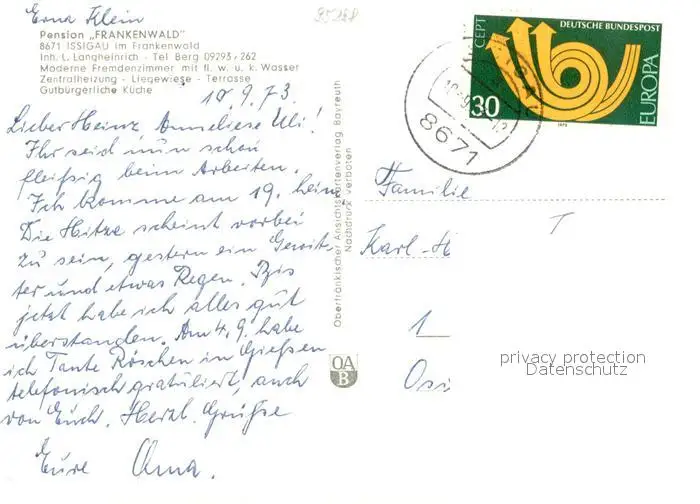 Erna Klein
95158
Pension „FRANKENWALD"
8671 ISSIGAU im Frankenwald
Inh. L. Langheinrich - Tel Berg 09293/262
Moderne Fremdenzimmer mit fl. w. u. k. Wasser
Zentralheizung - Liegewiese - Terrasse
Gutbürgerliche Küche
10.9.73.
Lieber Heinz Anneliese Uli!
Ihr seid nun schon
fleißig beim Arbeiten.
Ich komme am 19. heim
Die Hitze scheint vorbei
zu sein, gestern ein Gewit-
ter und etwas Regen. Bis
jetzt habe ich alles gut
überstanden. Am 4.9. habe
ich Tante Röschen in Gießen
telefonisch gratuliert, auch
von Euch. Herzl. Grüße
Eure Oma.
Oberfränkischer Ansichtskartenverlag Bayreuth
Nachdruck verboten
OA
B
CEPT
DEUTSCHE BUNDESPOST
EUROPA
30
1973
8671
Familie
Karl-H
1
T
privacy protection
Datenschutz